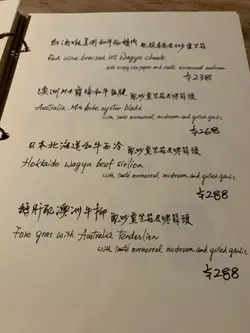 红酒烩美国和牛面颊肉 配
Red wine braised US Wagyu cheek
with crispy rice paper and sauté mormoreal mushroom
$238
澳洲M4 和牛 配炒萱茸菇及烤蒜頭
Australia M4 kobe oyster blade
with sauté mormoreal mushroom and grilled garlic
$268
日本北海道和牛西冷 配炒萱茸菇及烤蒜頭
Hokkaido wagyu beef sirlion
with sauté mormoreal mushroom and grilled garlic
$288
鵝肝配澳洲牛柳 配炒萱茸菇及烤蒜頭
Fore gras with Australia tenderlion
with sauté mormoreal mushroom and grilled garlic
$288